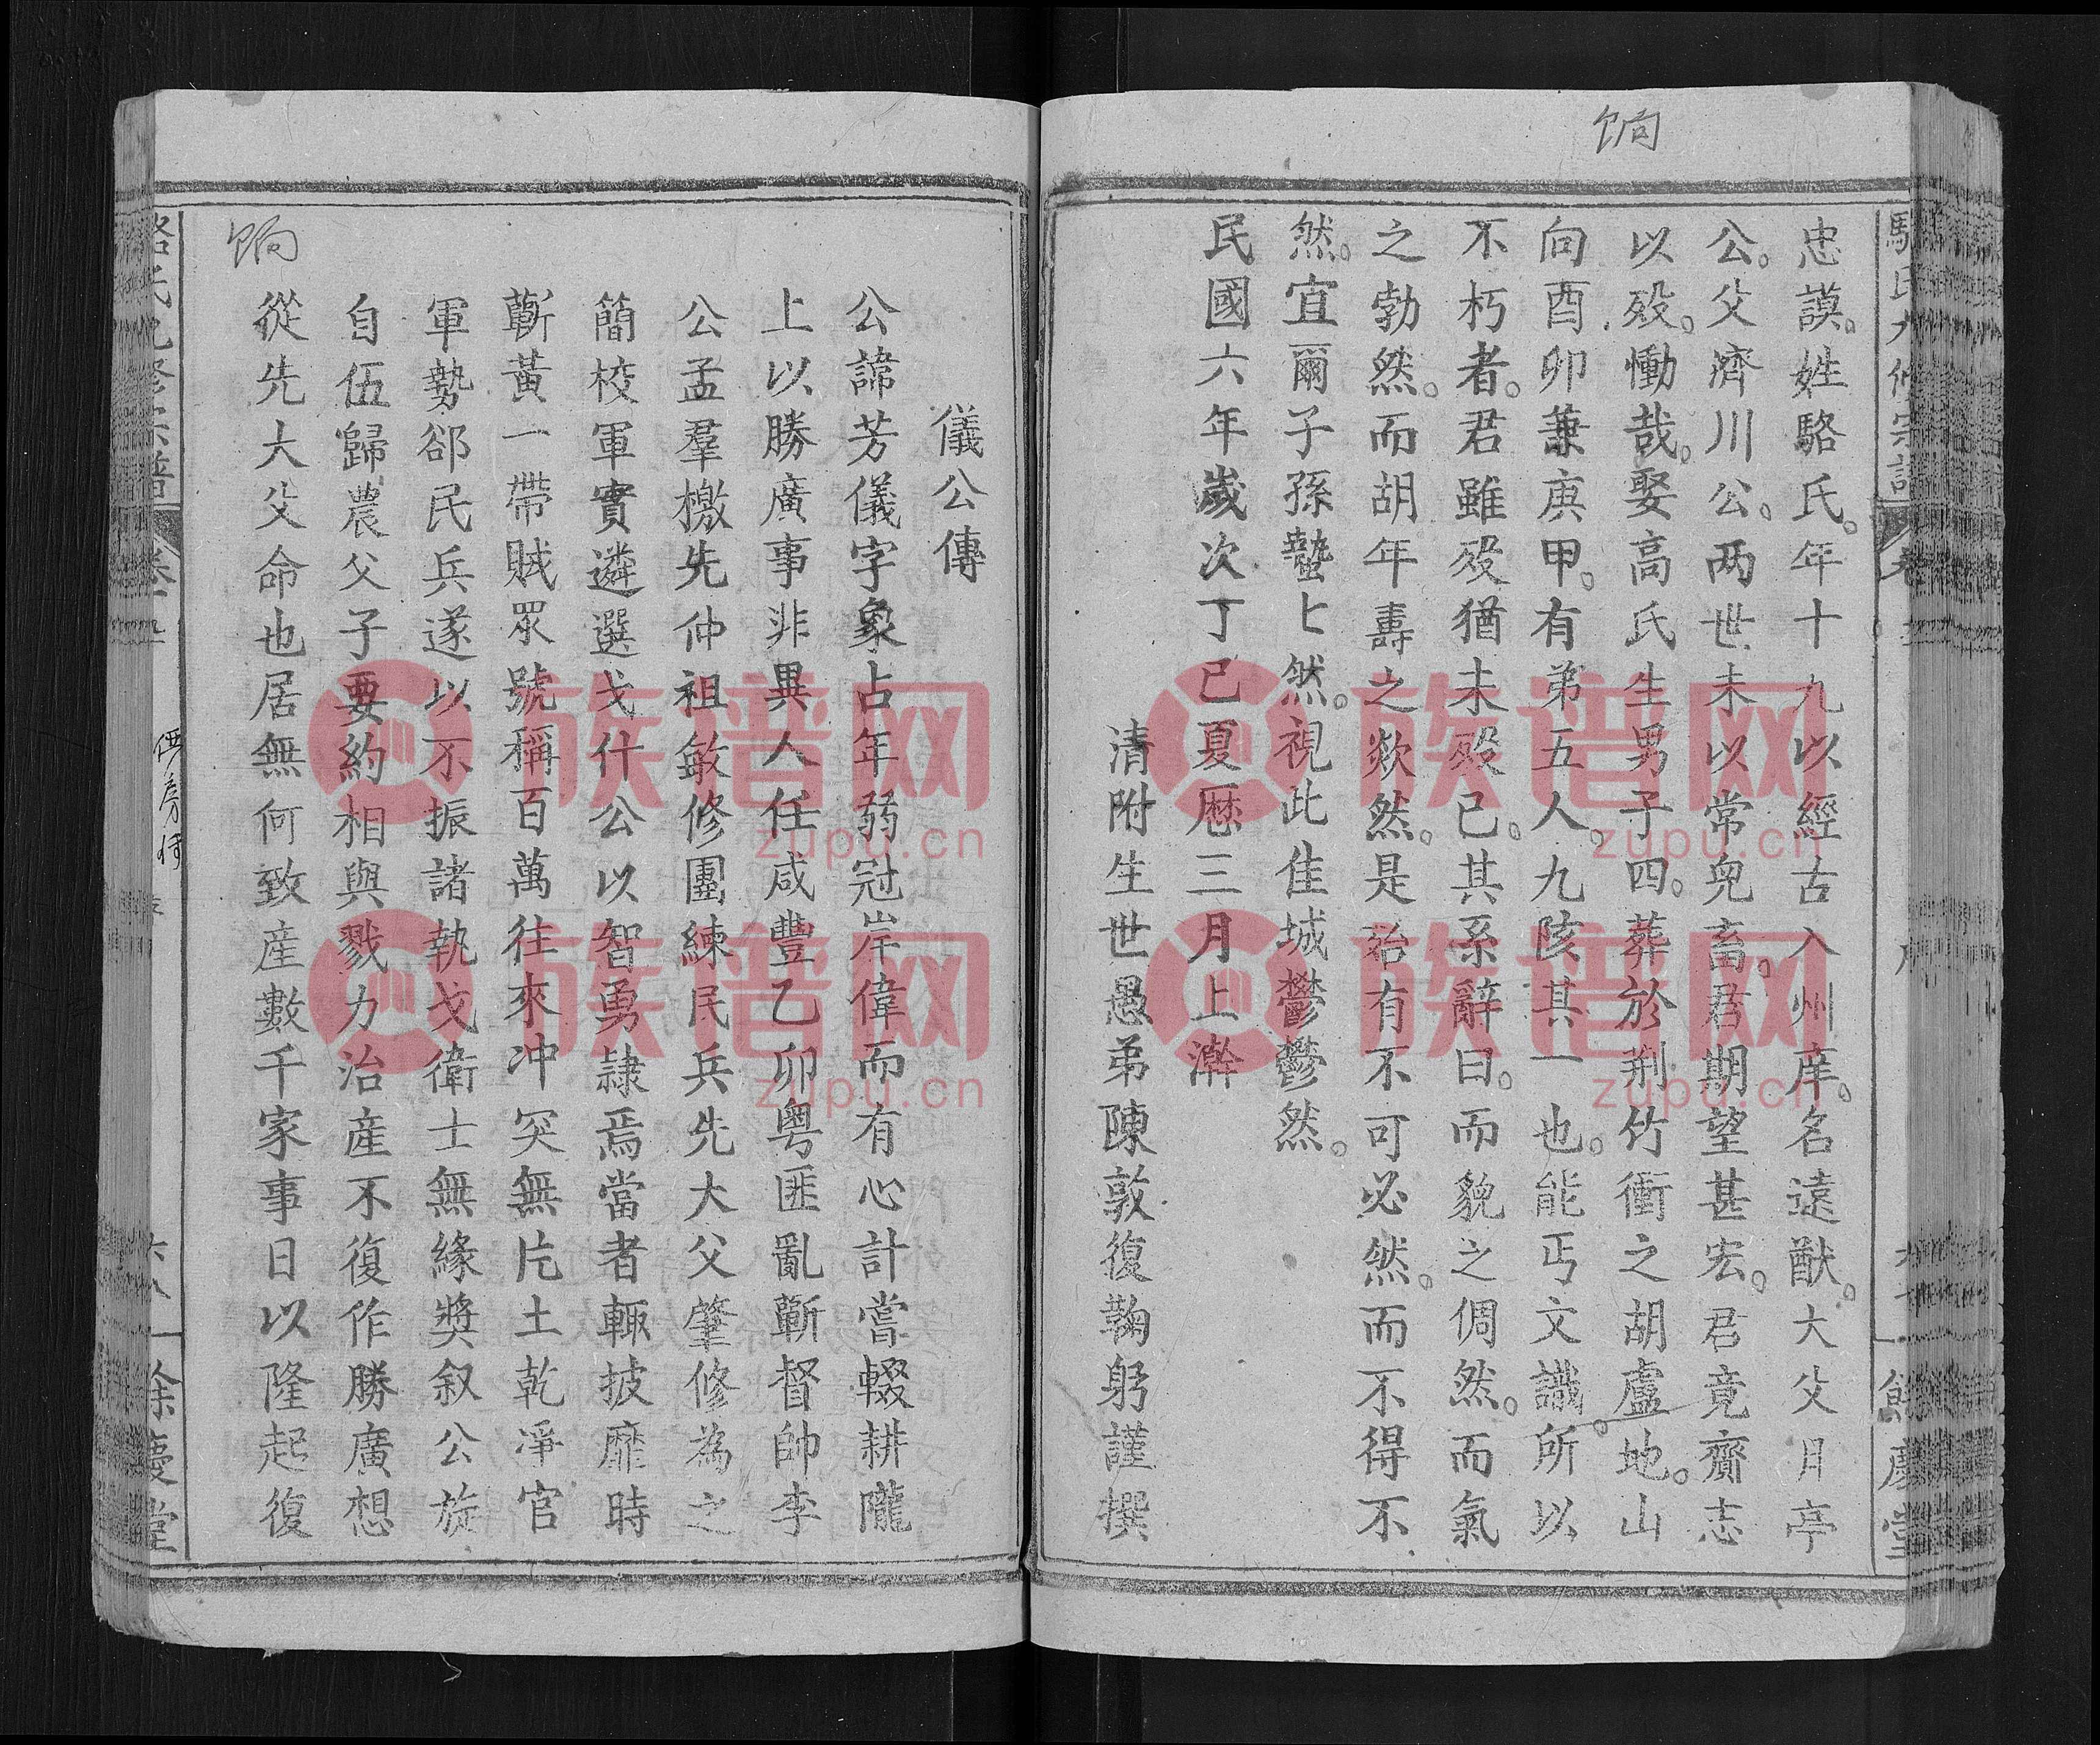 忠謨。姓駱氏。年十九以經古入州庠。名遠猷。大父月亭
公。父濟川公。两世未以常兒畜。君期望甚宏。君竟齎志
以歿。慟哉。娶高氏生男子四。葬於荆竹衝之胡盧地。山
向酉卯兼庚甲。有弟五人。九陔其一也。能丐文識。所以
不朽者。君雖歿猶未歿已。其系辭曰。而貌之倜然。而氣
之勃然。而胡年壽之欻然。是殆有不可必然。而不得不
然。宜爾子孫蟄㠯然。視此佳城鬱鬱然。
民國六年歲次丁巳夏厯三月上澣
清附生世愚弟陳敦復鞠躬謹撰
儀公傳
公諱芳儀字象占年弱冠岸偉而有心計嘗輟耕隴
上以勝廣事非異人任咸豐乙卯粤匪亂蘄督帥李
公孟羣檄先仲祖敏修團練民兵先大父肇修為之
簡校軍實遴選戈什公以智勇隷焉當者輒披靡時
蘄黄一帶賊眾號稱百萬往來冲突無片土乾淨官
軍勢郤民兵遂以不振諸執戈衛士無緣奬叙公旋
自伍歸農父子要約相與戮力治產不復作勝廣想
從先大父命也居無何致產數千家事日以隆起復
餘慶堂
族谱网
zupu.cn
族谱网
zupu.cn
族谱网
zupu.cn
族谱网
zupu.cn